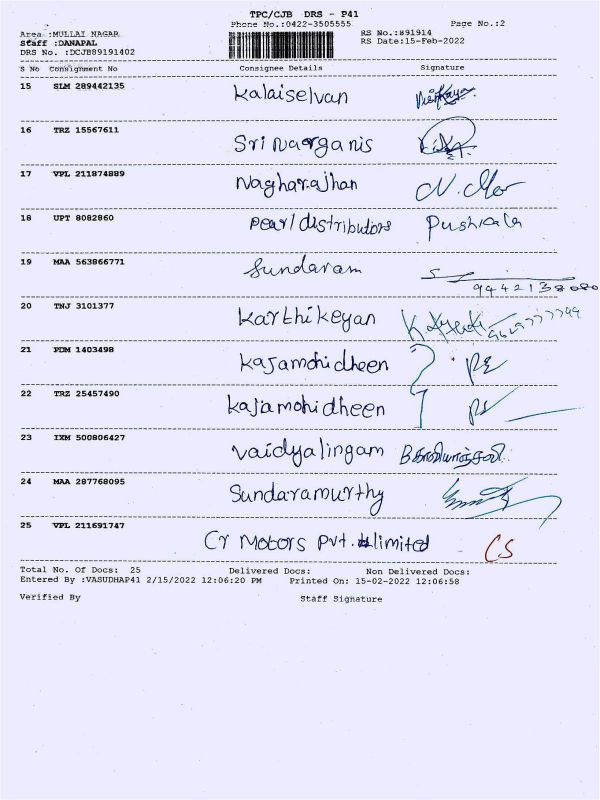 TPC/CJB DRS - P41
Phone No.:0422-3505555 Page No.:2
Area :MULLAI NAGAR RS No.:891914
Staff :DANAPAL RS Date:15-Feb-2022
DRS No. :DCJB89191402
S No Consignment No Consignee Details Signature
15 SLM 289442135 Kalaiselvan
16 TRZ 15567611 Sri Naarganis
17 VPL 211874889 Nagharajhan
18 UPT 8082860 pearl distributors Pushkala
19 MAA 563866771 Sundaram
9442138080
20 TNJ 3101377 Karthikeyan
21 PDM 1403498 Kajamohidheen
22 TRZ 25457490 Kajamohidheen
23 IXM 500806427 Vaidyalingam
24 MAA 287768095 Sundaramurthy
25 VPL 211691747 Cr Motors Pvt. limited CS
Total No. Of Docs: 25 Delivered Docs: Non Delivered Docs:
Entered By :VASUDHAP41 2/15/2022 12:06:20 PM Printed On: 15-02-2022 12:06:58
Verified By Staff Signature